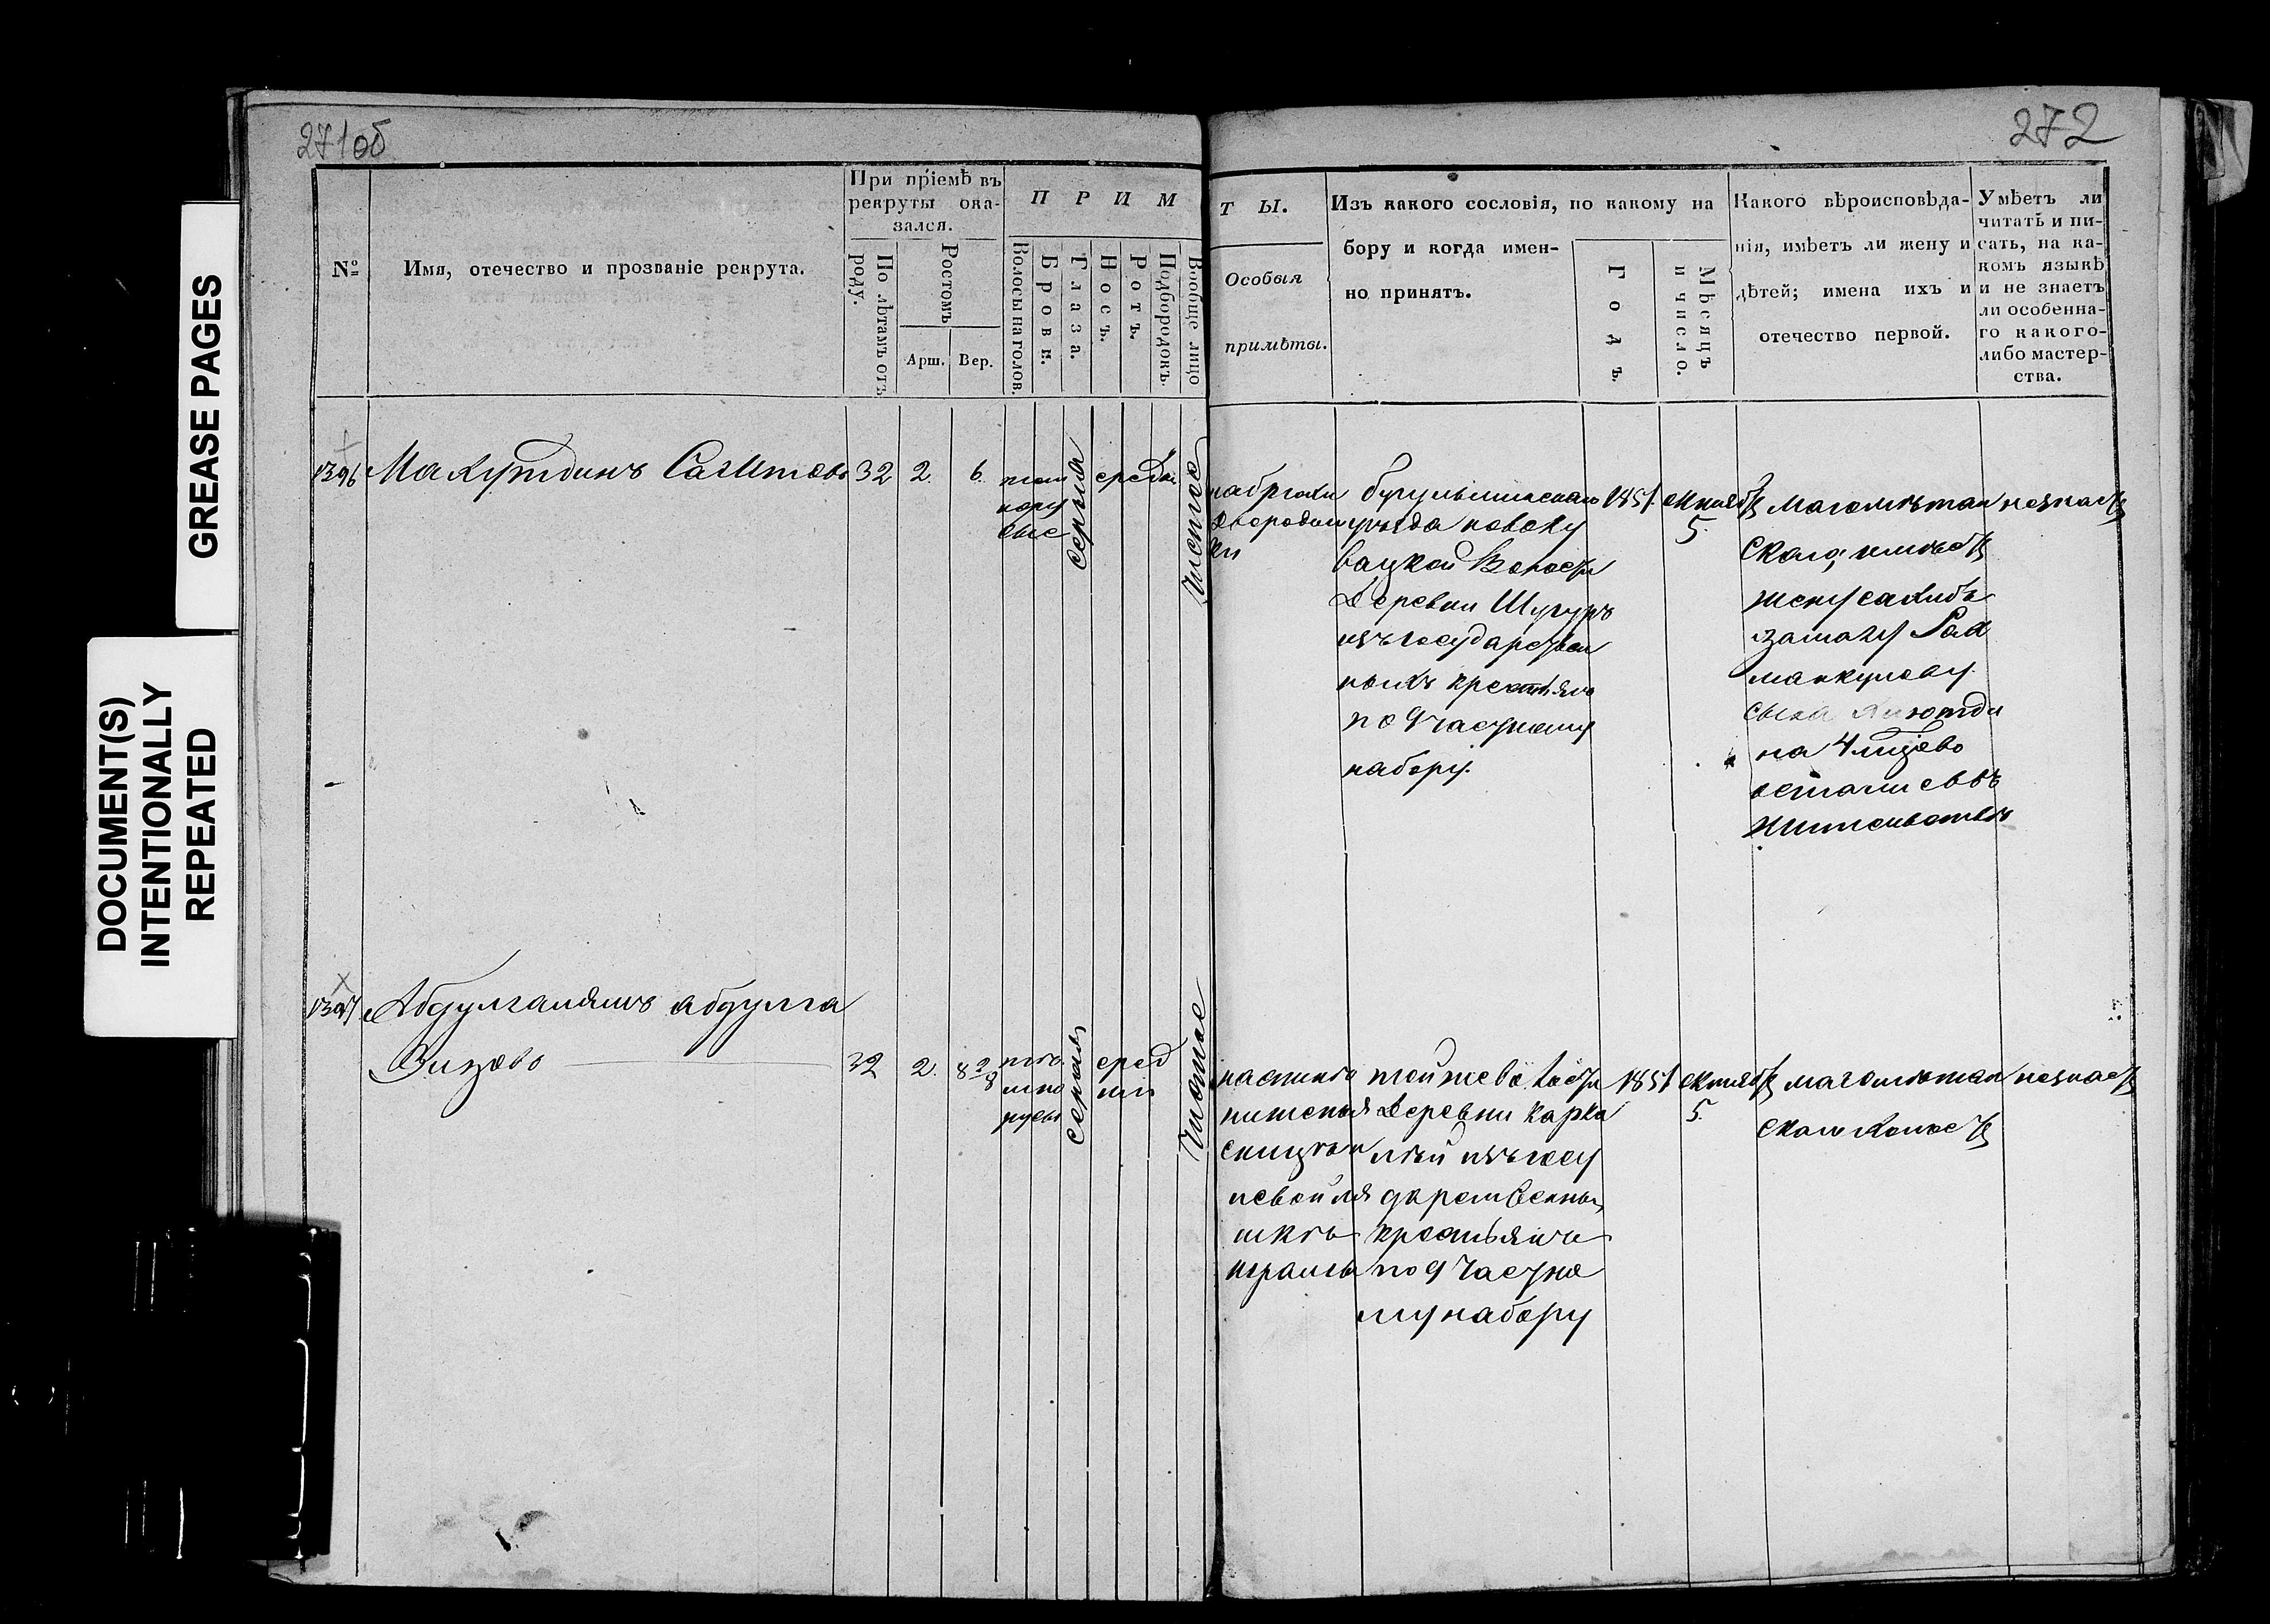 271об
272
GREASE PAGES
DOCUMENT(S)
INTENTIONALLY
REPEATED
№
Имя, отечество и прозваніе рекрута.
При пріемѣ въ
рекруты ока-
зался.
По лѣтамъ отъ
роду.
Ростомъ
Арш.
Вер.
П Р И М
Волосы на голов.
Брови.
Глаза.
Носъ.
Ротъ.
Подбородокъ.
Вообще лицо
Т Ы.
Особыя
примѣты.
Изъ какого сословія, по какому на
бору и когда имен-
но принятъ.
Годъ.
Мѣсяцъ
и число.
Какого вѣроисповѣда-
нія, имѣетъ ли жену и
дѣтей; имена ихъ и
отечество первой.
Умѣетъ ли
читать и пи-
сать, на ка-
комъ языкѣ
и не знаетъ
ли особенна-
го какого-
либо мастер-
ства.
1396
Махутдинъ Сагитовъ
32
2
6
темно
русые
серыя
средн
чистое
на брюхи
бугульминскаго
уѣзда
вацкой Волости
Деревни Шугуръ
изъ государствен
ныхъ крестьянъ
по 9 частному
набору.
1851
октябр
5.
магометан
скаго, имѣетъ
жену
сына
на
жительствѣ
незнаетъ
1397
Абдулгалямъ абдулга
Зизовъ
32
2.
8 2/8
темно
русы
серыя
сред
ній
чистое
на спинѣ
Деревни
изъ госу
дарственныхъ
крестьянъ
по 9 частно
му набору
1851
октябр
5.
магометан
скаго холостъ
незнаетъ